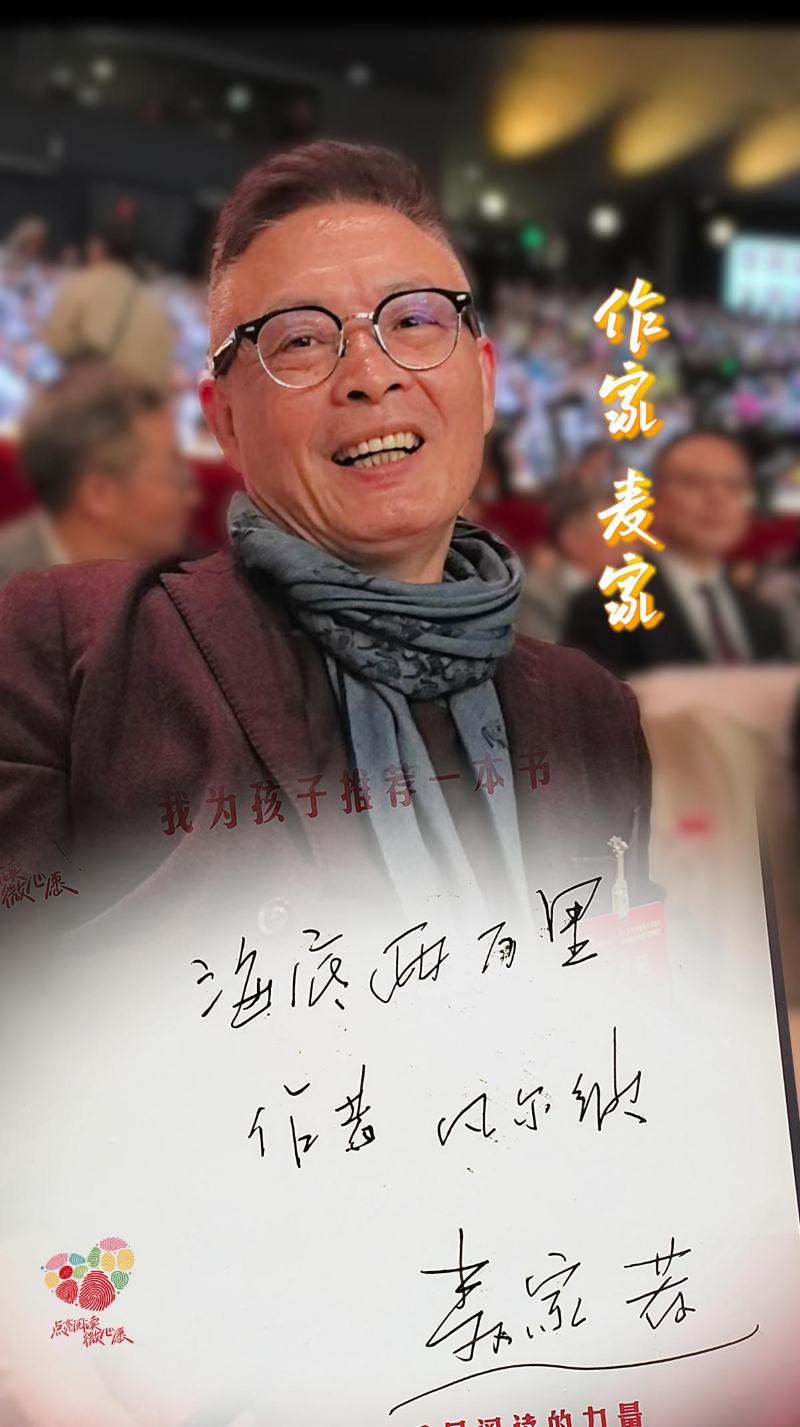 作家 麦家
我为孩子推荐一本书
微心愿
海底两万里
作者 凡尔纳
麦家 荐
点亮阅读
微心愿
阅读的力量